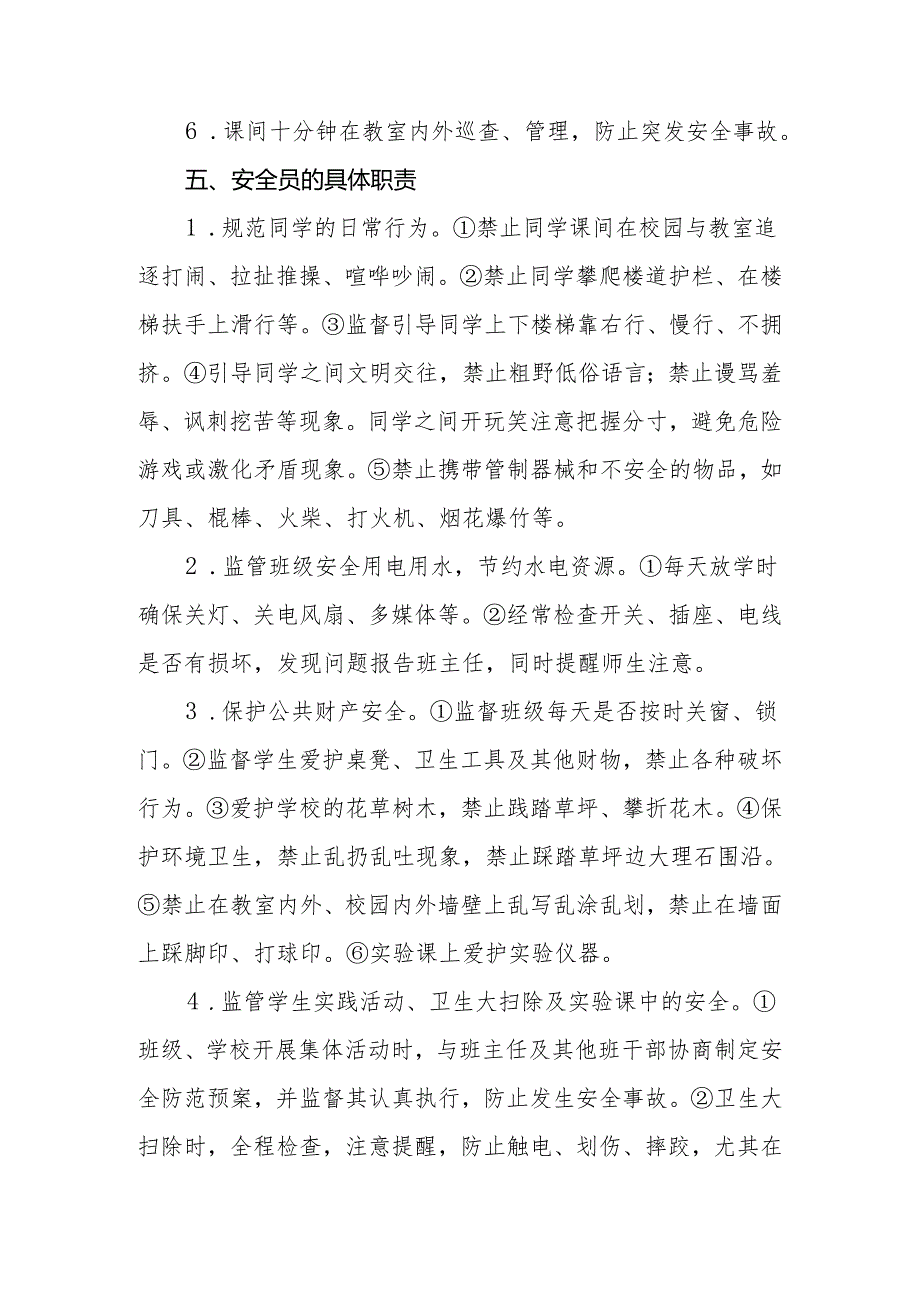 6．课间十分钟在教室内外巡查、管理，防止突发安全事故。
五、安全员的具体职责
1．规范同学的日常行为。①禁止同学课间在校园与教室追
逐打闹、拉扯推操、喧哗吵闹。②禁止同学攀爬楼道护栏、在楼
梯扶手上滑行等。③监督引导同学上下楼梯靠右行、慢行、不拥
挤。④引导同学之间文明交往，禁止粗野低俗语言；禁止谩骂羞
辱、讽刺挖苦等现象。同学之间开玩笑注意把握分寸，避免危险
游戏或激化矛盾现象。⑤禁止携带管制器械和不安全的物品，如
刀具、棍棒、火柴、打火机、烟花爆竹等。
2．监管班级安全用电用水，节约水电资源。①每天放学时
确保关灯、关电风扇、多媒体等。②经常检查开关、插座、电线
是否有损坏，发现问题报告班主任，同时提醒师生注意。
3．保护公共财产安全。①监督班级每天是否按时关窗、锁
门。②监督学生爱护桌凳、卫生工具及其他财物，禁止各种破坏
行为。③爱护学校的花草树木，禁止践踏草坪、攀折花木。④保
护环境卫生，禁止乱扔乱吐现象，禁止踩踏草坪边大理石围沿。
⑤禁止在教室内外、校园内外墙壁上乱写乱涂乱划，禁止在墙面
上踩脚印、打球印。⑥实验课上爱护实验仪器。
4．监管学生实践活动、卫生大扫除及实验课中的安全。①
班级、学校开展集体活动时，与班主任及其他班干部协商制定安
全防范预案，并监督其认真执行，防止发生安全事故。②卫生大
扫除时，全程检查，注意提醒，防止触电、划伤、摔跤，尤其在